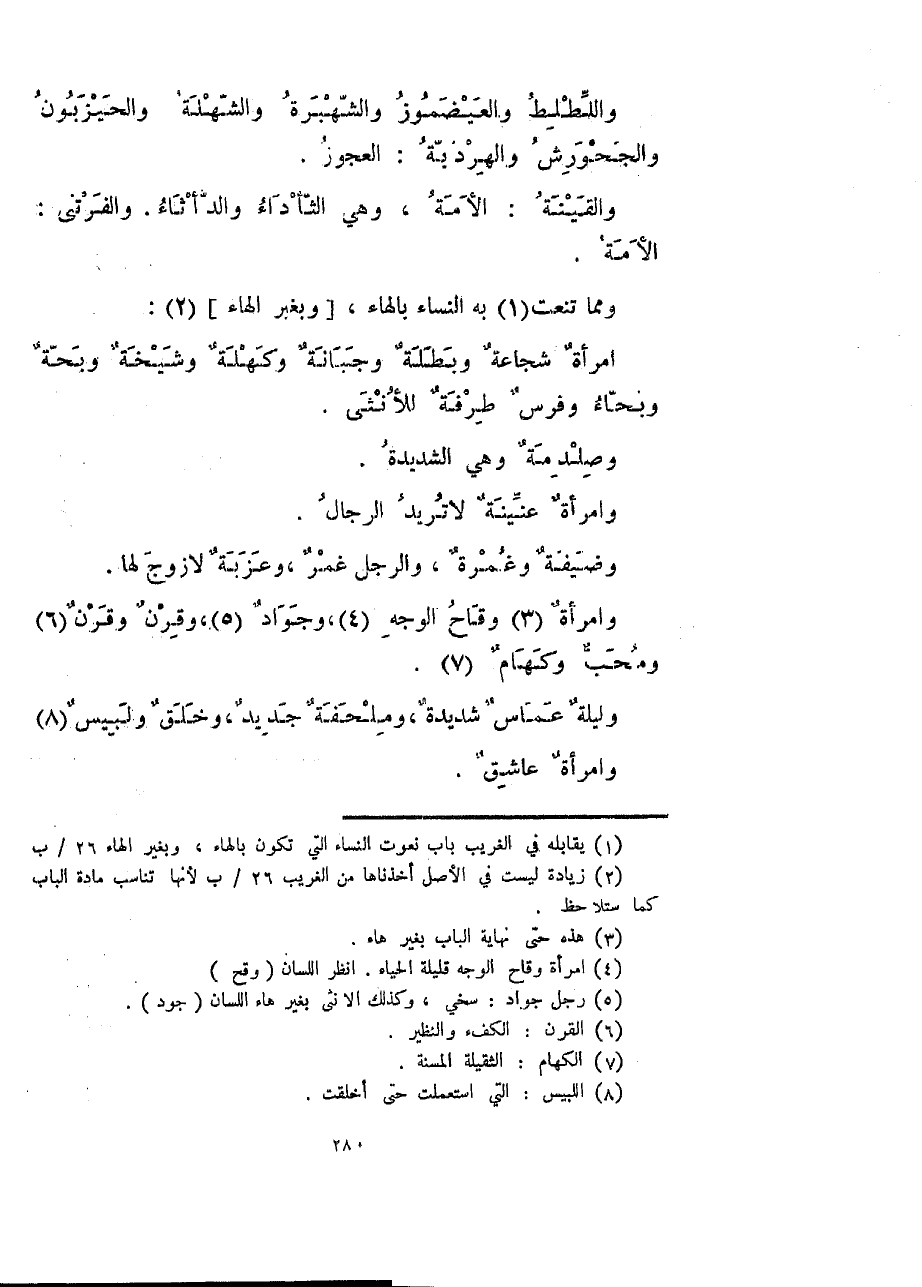 واللِّطْلِطُ والعَيْضَمُوزُ والشَّهْبَرَةُ والشَّهْلَةُ والحَيْزَبُونُ
والجَحْوَرِشُ والهِرْدَبّةُ : العجوزُ .
والقَيْنَةُ : الأَمَةُ ، وهي الثَّأْدَاءُ والدَّأْثَاءُ . والفَرْتنى :
الأَمَةُ .
ومما تنعت (١) به النساء بالهاء ، [ وبغير الهاء ] (٢) :
امرأةٌ شجاعةٌ وبَطَلَةٌ وجَبَانَةٌ وكَهْلَةٌ وشَيْخَةٌ وبَحّةٌ
وبَحّاءُ وفرسٌ طِرْفَةٌ للأُنْثَى .
وصِلْدِمَةٌ وهي الشديدةُ .
وامرأةٌ عنِّينَةٌ لاتُريدُ الرجالُ .
وضَيفَةٌ وغُمْرةٌ ، والرجل غمْرٌ ، وعَزَبَةٌ لازوجَ لها .
وامرأةٌ (٣) وقَاحُ الوجهِ (٤) ، وجَوَادٌ (٥) ، وقِرْنٌ وقَرْنٌ (٦)
ومُحَبٌّ وكَهَامٌ (٧) .
وليلةٌ عَمَاسٌ شديدةٌ ، ومِلْحَفَةٌ جَدِيدٌ ، وخَلَقٌ ولَبِيسٌ (٨)
وامرأةٌ عاشِقٌ .
(١) يقابله في الغريب باب نعوت النساء التي تكون بالهاء ، وبغير الهاء ٢٦ / ب
(٢) زيادة ليست في الأصل أخذناها من الغريب ٢٦ / ب لأنها تناسب مادة الباب
كما ستلاحظ .
(٣) هذه حتى نهاية الباب بغير هاء .
(٤) امرأة وقاح الوجه قليلة الحياء . انظر اللسان ( وقح )
(٥) رجل جواد : سخي ، وكذلك الانثى بغير هاء اللسان ( جود ) .
(٦) القرن : الكفء والنظير .
(٧) الكهام : الثقيلة المسنة .
(٨) اللبيس : التي استعملت حتى أخلقت .
٢٨٠